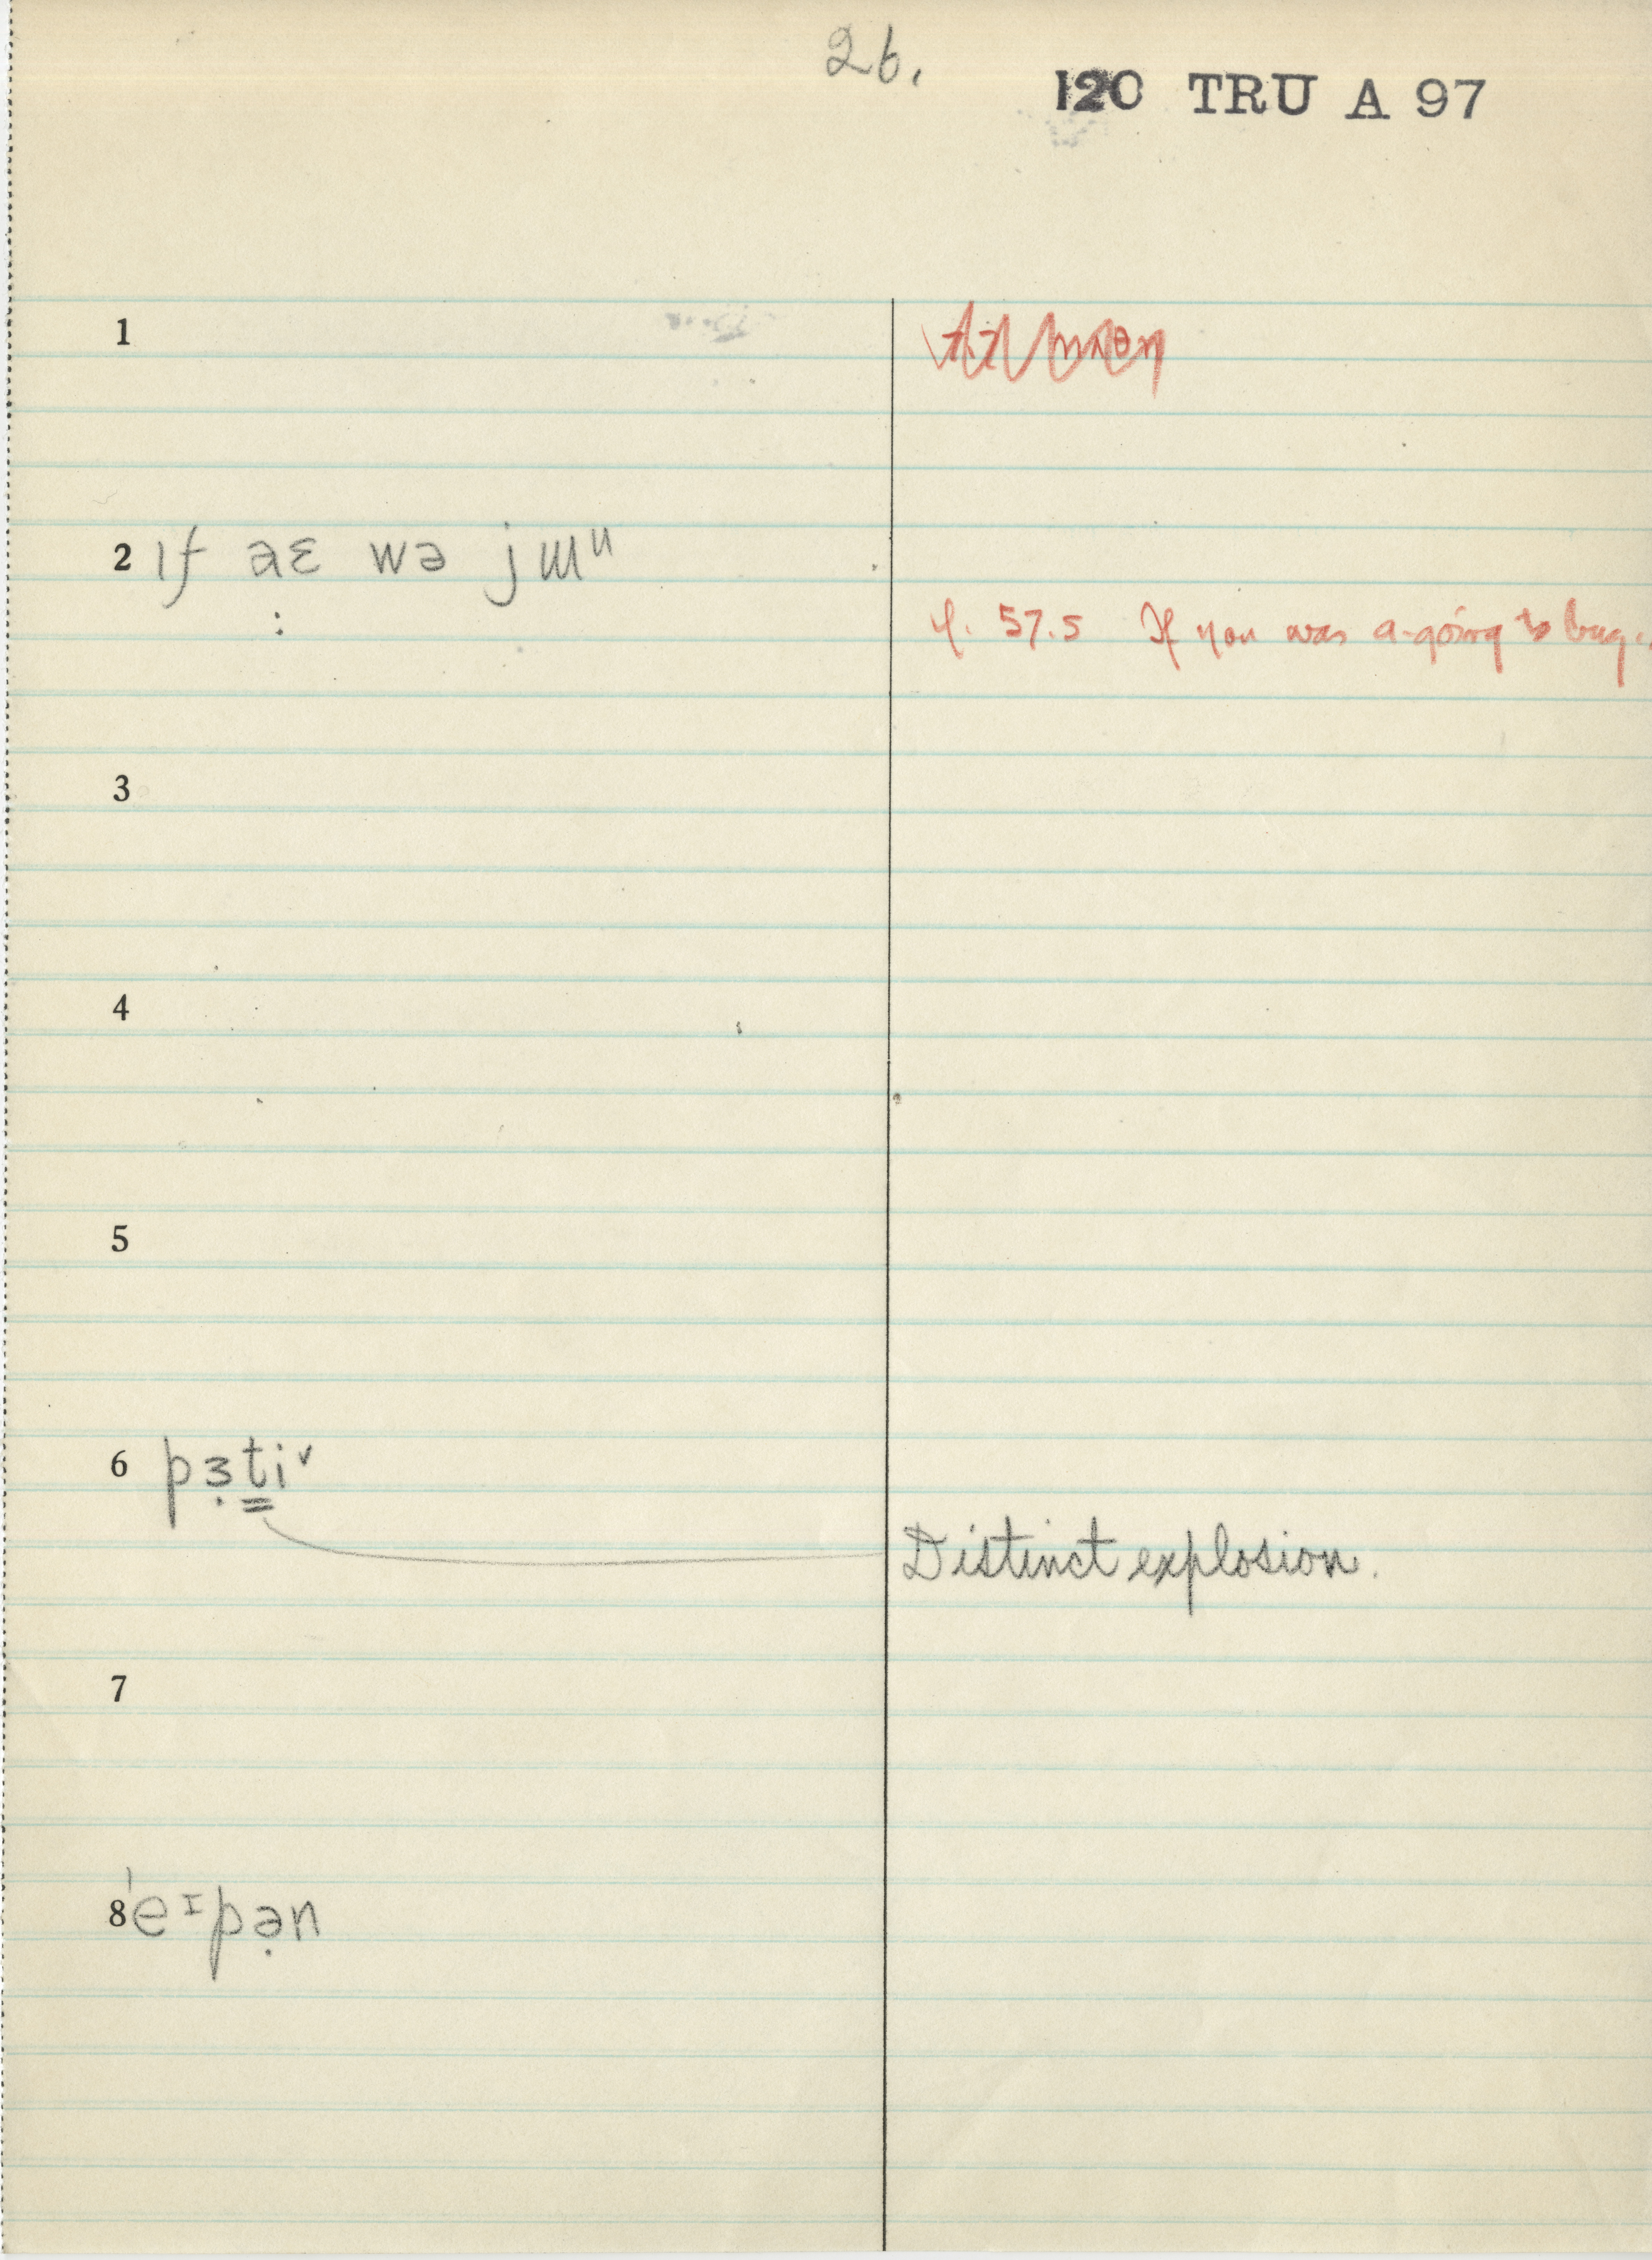 26.
120 TRU A 97
1
2 ıf aɛ wə jɯᵘ
:
cf. 57.5 If you was a-going to buy..
3
4
5
6 pɜ̣t̳iᵛ
Distinct explosion.
7
8 ˈeᴵpə̣n